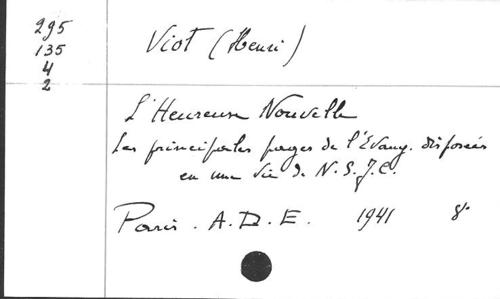 295
135
4
2
Viot (Henri)
L'Heureuse Nouvelle
Les principales pages de l'Evang. disposées
en une vie de N. S. J. C.
Paris. A. D. E. 1941 8°